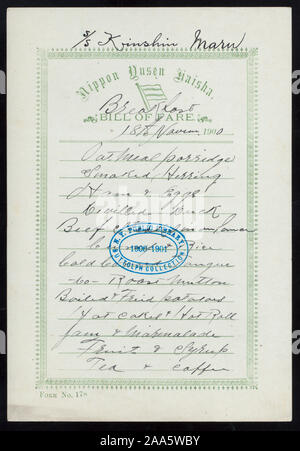 S/S Kinshiu Maru
Nippon Yusen Kaisha.
Breakfast
BILL OF FARE.
18th Novem. 1900
Oatmeal porridge
Smoked Herring
Ham & Eggs
Devilled Duck
Beef
Rice
Cold Corned Tongue
-do- Roast Mutton
Boiled & Fried potatoes
Hot cakes & Hot Roll
Jam & Marmalade
Fruit & Syrup
Tea & Coffee
N.Y. PUBLIC LIBRARY
1900-1901
BUTTOLPH COLLECTION
FORM No. 178
alamy
Image ID: 2AA5WBY
www.alamy.com